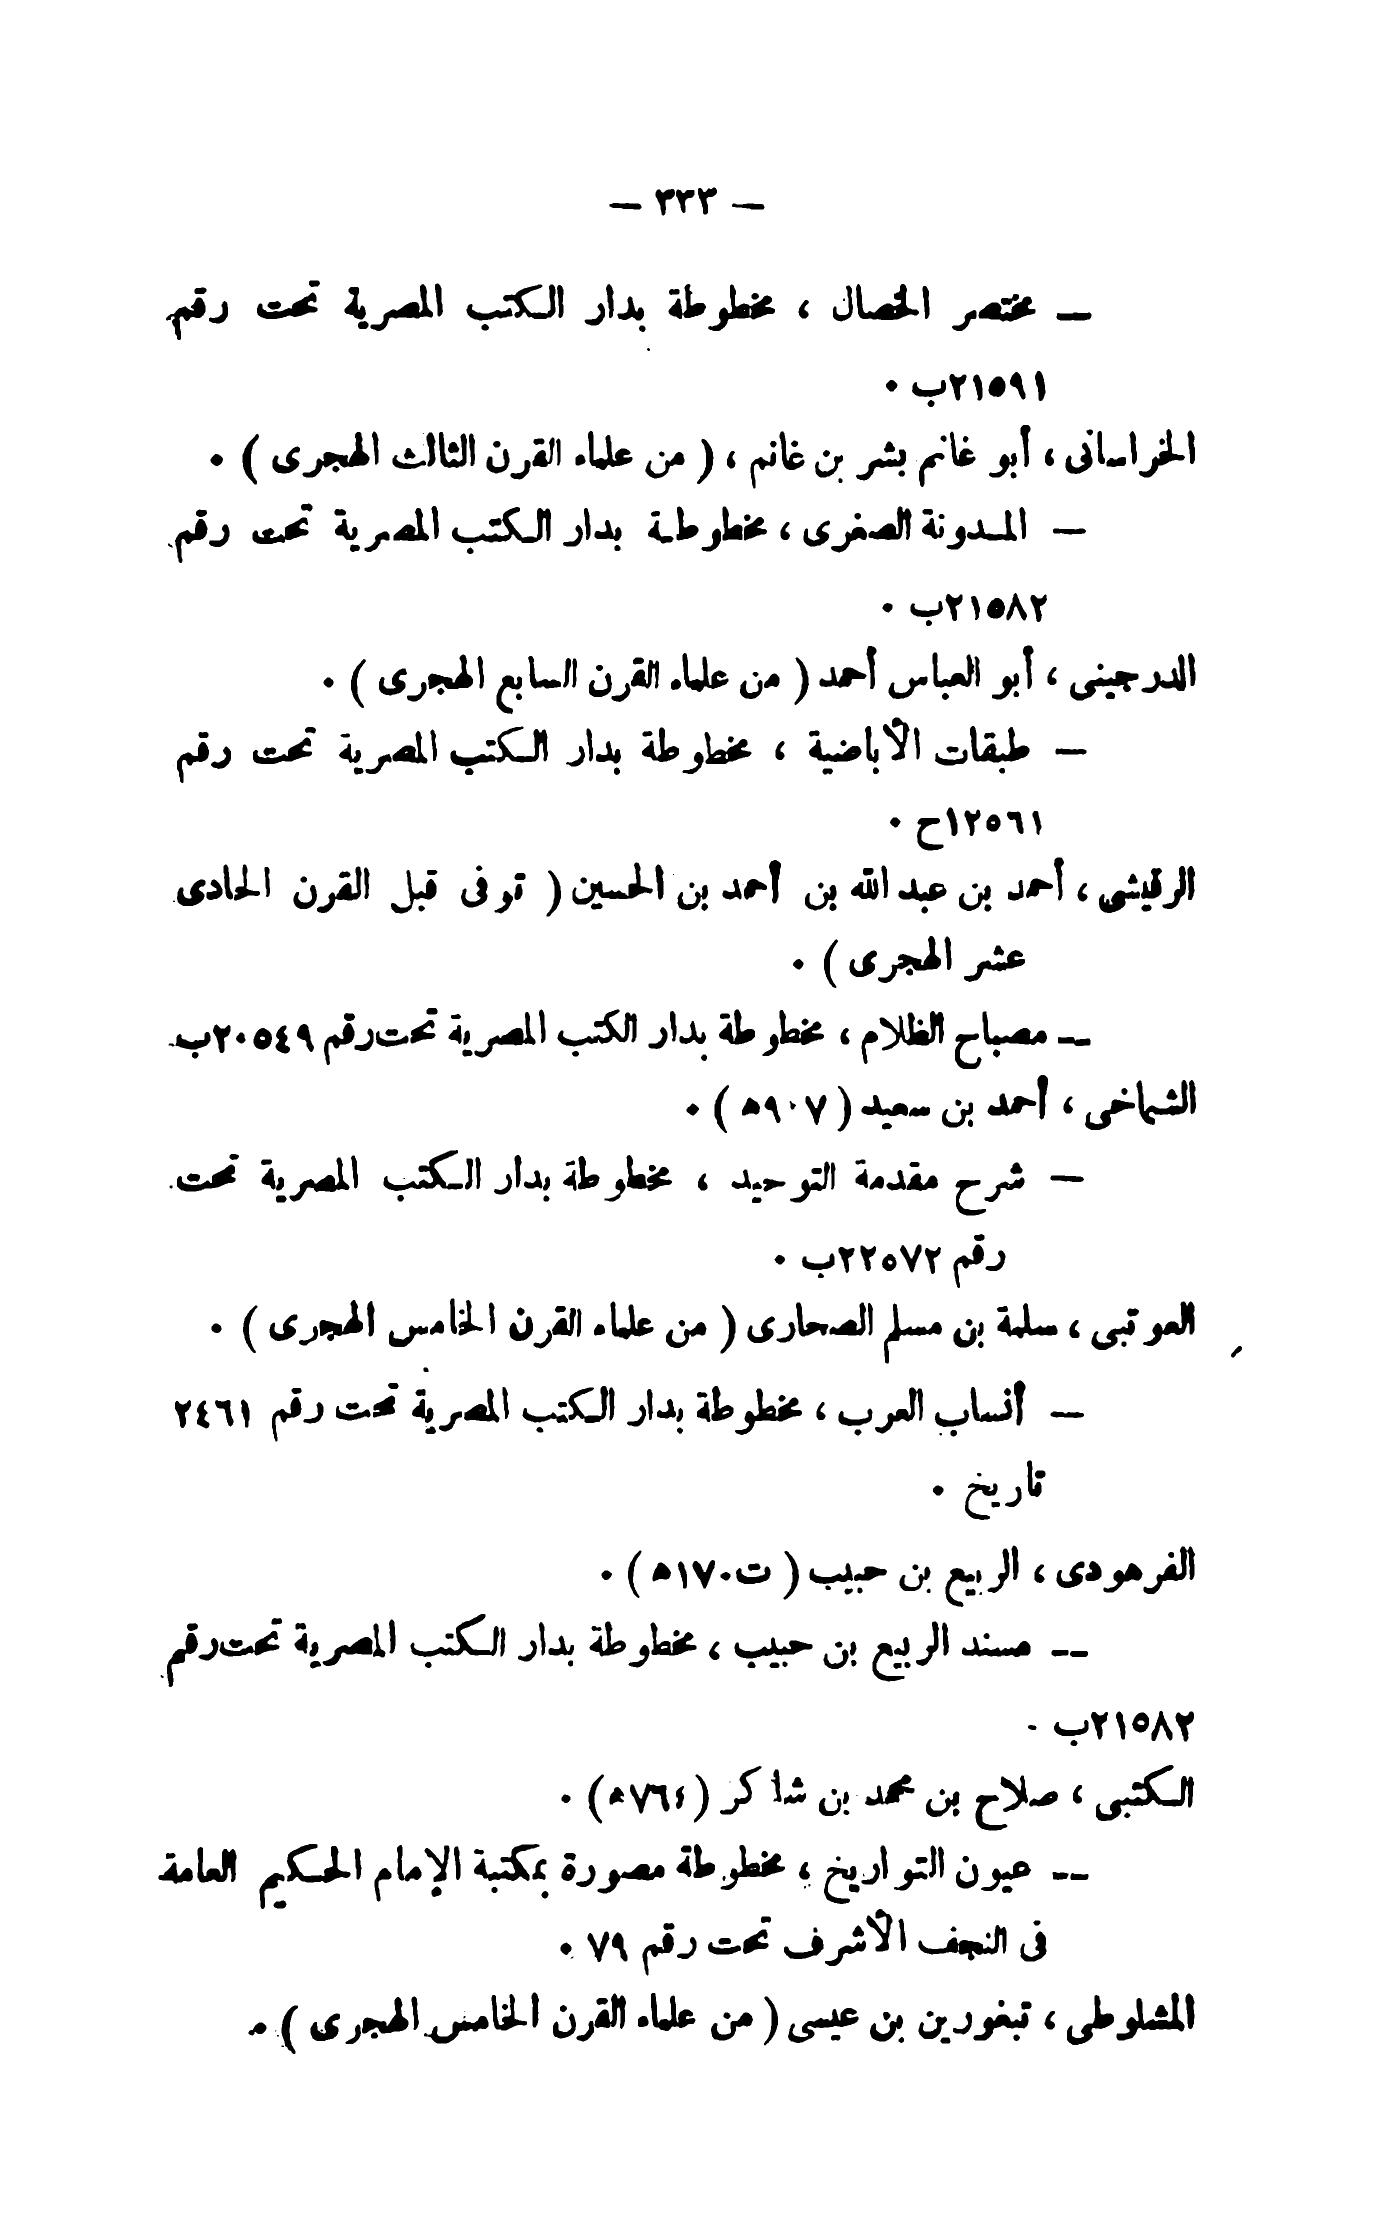 — ٣٣٣ —
— مختصر الخصال ، مخطوطة بدار الكتب المصرية تحت رقم
٢١٥٩١ب ٠
الخراسانى ، أبو غانم بشر بن غانم ، ( من علماء القرن الثالث الهجرى ) ٠
— المدونة الصغرى ، مخطوطة بدار الكتب المصرية تحت رقم
٢١٥٨٢ب ٠
الدرجينى ، أبو العباس أحمد ( من علماء القرن السابع الهجرى ) ٠
— طبقات الأباضية ، مخطوطة بدار الكتب المصرية تحت رقم
١٢٥٦١ح ٠
الرقيشى ، أحمد بن عبد الله بن أحمد بن الحسين ( توفى قبل القرن الحادى
عشر الهجرى ) ٠
— مصباح الظلام ، مخطوطة بدار الكتب المصرية تحت رقم ٢٠٥٤٩ب
الشماخى ، أحمد بن سعيد ( ٩٠٧ه ) ٠
— شرح مقدمة التوحيد ، مخطوطة بدار الكتب المصرية تحت
رقم ٢٢٥٧٢ب ٠
العوتبى ، سلمة بن مسلم الصحارى ( من علماء القرن الخامس الهجرى ) ٠
— أنساب العرب ، مخطوطة بدار الكتب المصرية تحت رقم ٢٤٦١
تاريخ ٠
الفرهودى ، الربيع بن حبيب ( ت١٧٠ه ) ٠
— مسند الربيع بن حبيب ، مخطوطة بدار الكتب المصرية تحت رقم
٢١٥٨٢ب ٠
الكتبى ، صلاح بن محمد بن شاكر (٧٦٤ه) ٠
— عيون التواريخ ، مخطوطة مصورة بمكتبة الإمام الحكيم العامة
فى النجف الأشرف تحت رقم ٧٩ ٠
المشلوطى ، تبغورين بن عيسى ( من علماء القرن الخامس الهجرى ) ٠